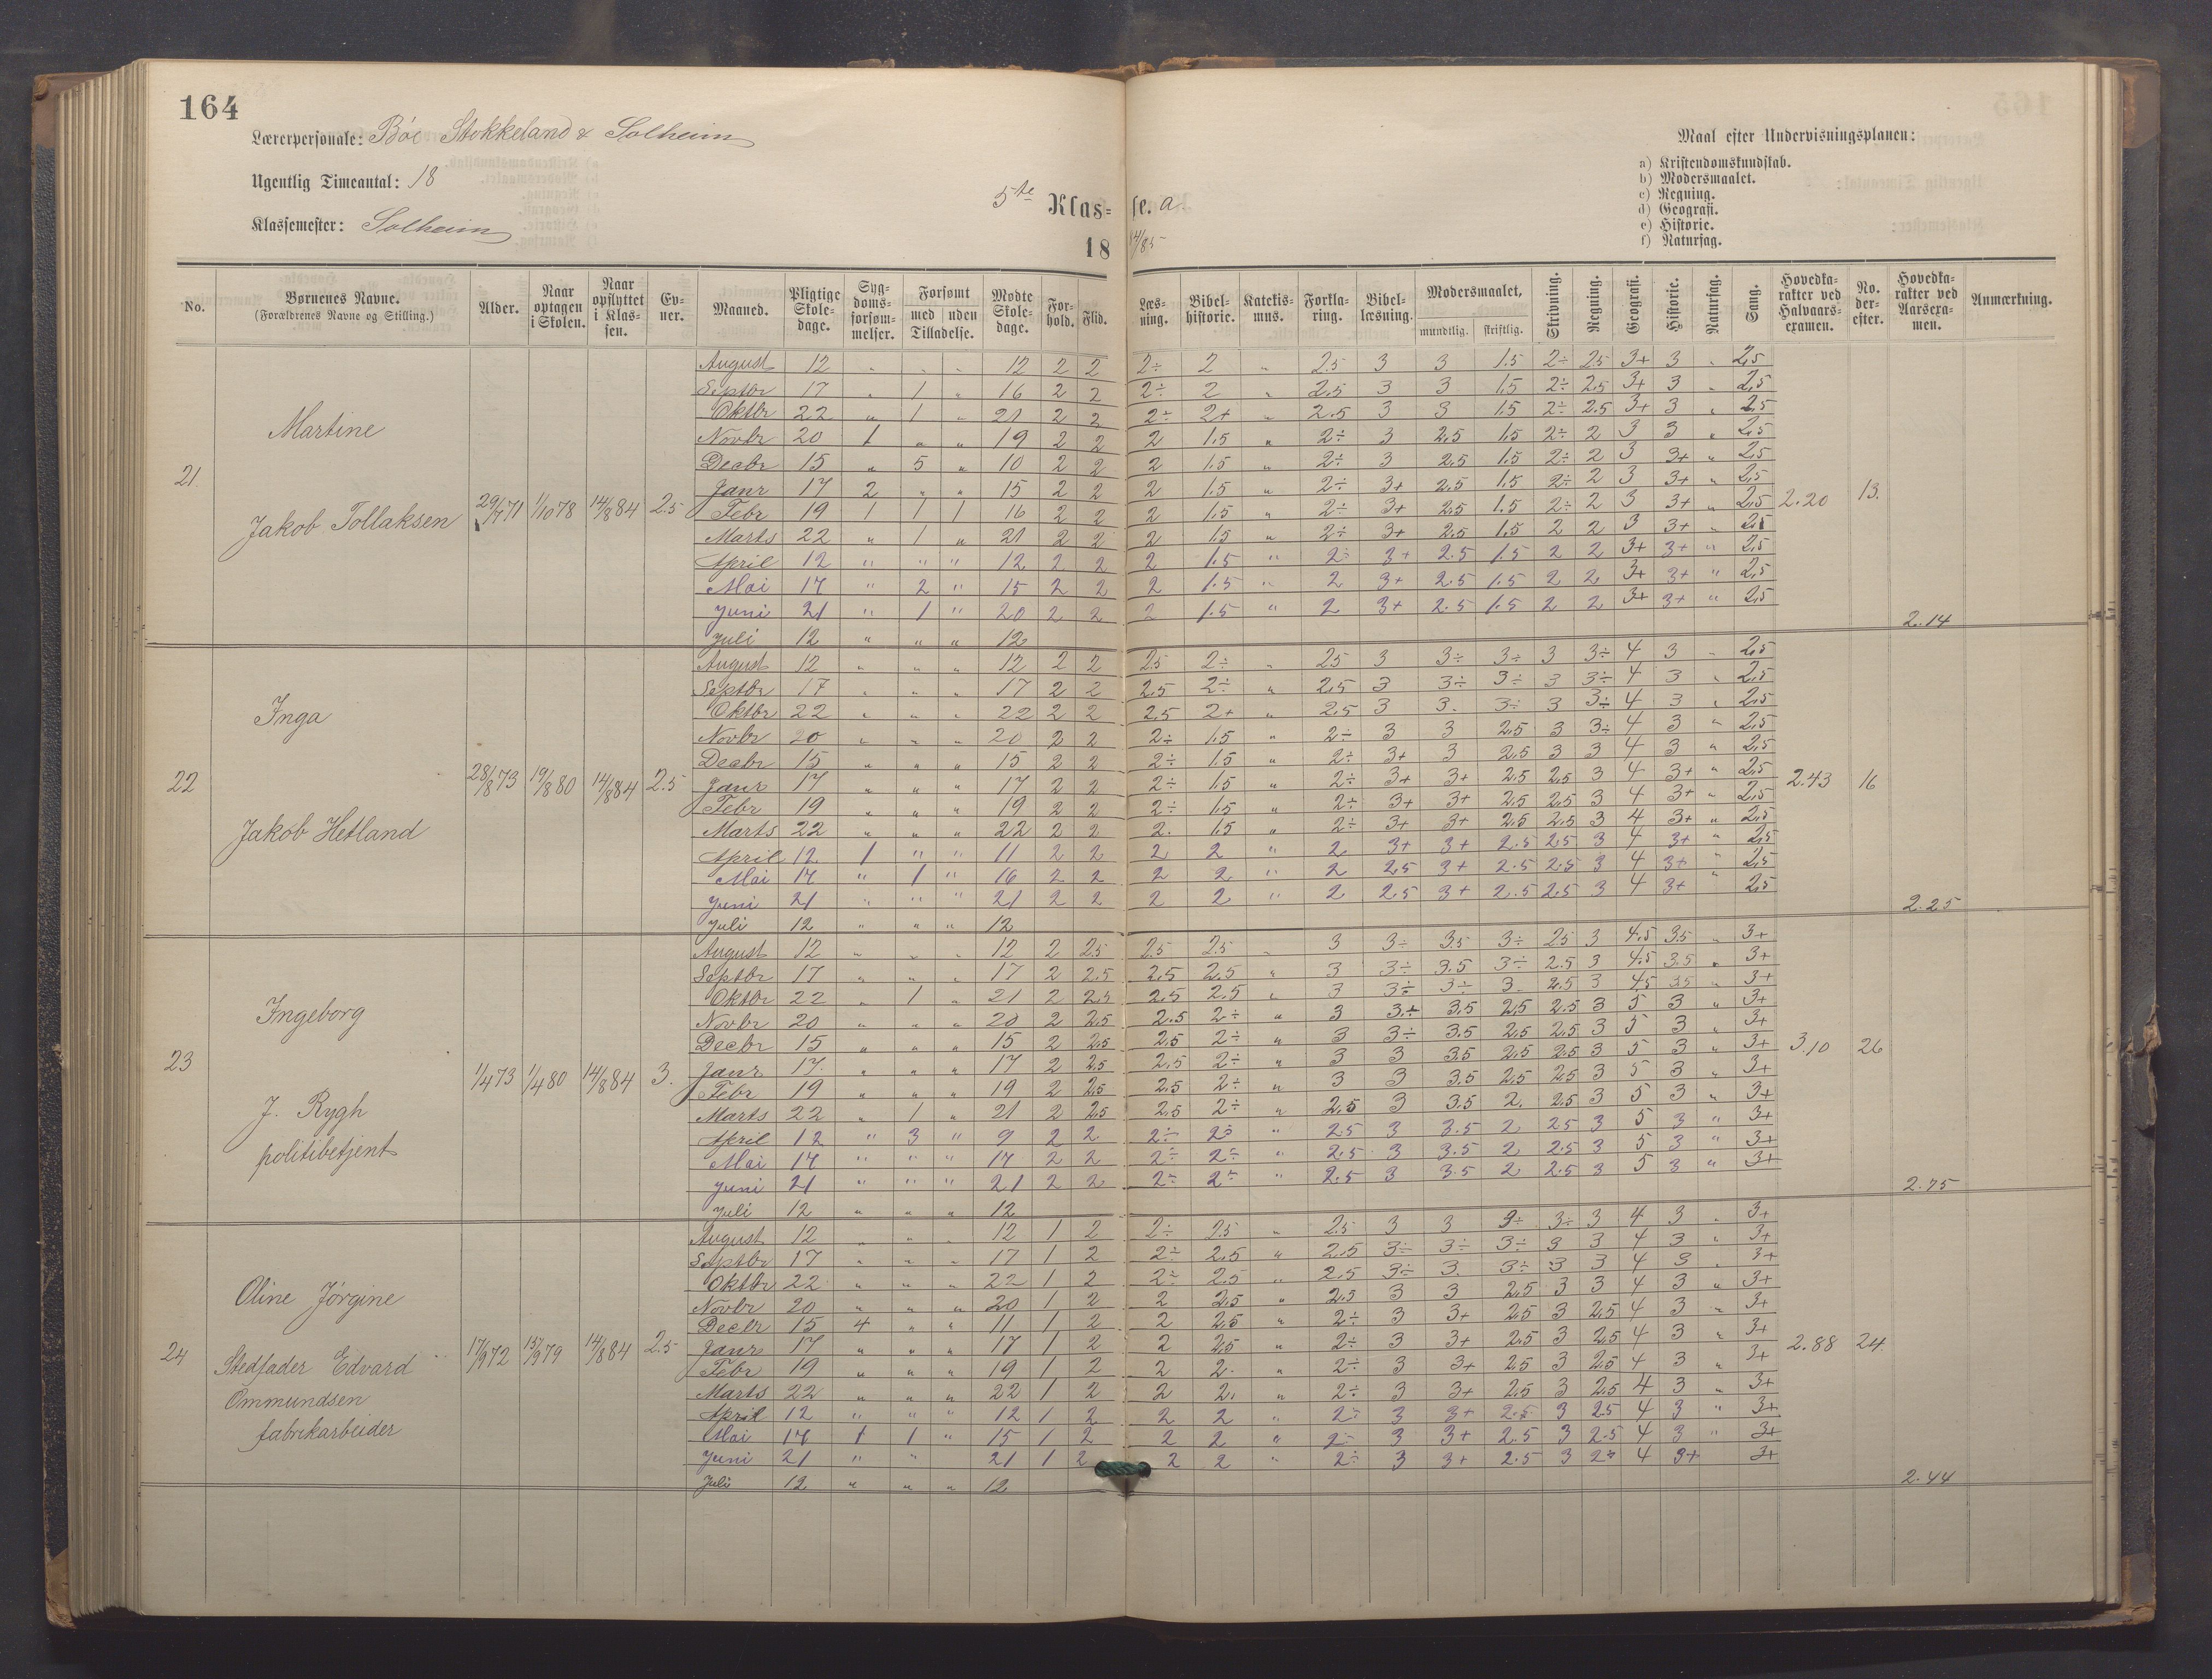 164
Lærerpersonale: Bóe Stokkeland & Solheim
Ugentlig Timeantal: 18
Klassemester: Solheim
5te Klas= se. a.
18 84/85
Maal efter Undervisningsplanen:
a) Kristendomskundskab.
b) Modersmaalet.
c) Regning.
d) Geografi.
e) Historie.
f) Naturfag.
No. | Børnenes Navne. (Forældrenes Navne og Stilling.) | Alder. | Naar optagen i Skolen. | Naar opflyttet i Klas-sen. | Ev-ner. | Maaned. | Pligtige Skole-dage. | Syg-doms-forsøm-melser. | Forsømt med Tilladelse. | Forsømt uden Tilladelse. | Mødte Skole-dage. | For-hold. | Flid. | Læs-ning. | Bibel-historie. | Katekis-mus. | Forkla-ring. | Bibel-læsning. | Modersmaalet, mundtlig. | skriftlig. | Skrivning. | Regning. | Geografi. | Historie. | Naturfag. | Sang. | Hovedka-rakter ved Halvaars-examen. | No. der-efter. | Hovedka-rakter ved Aarsexa-men. | Anmærkning.
21. Martine
Jakob Tollaksen 29/7 71 1/10 78 14/8 84 2.5 2.20 13. 2.14
August 12 " " " 12 2 2 2÷ 2 " 2.5 3 3 1.5 2÷ 2.5 3+ 3 " 2.5
Septbr 17 " 1 " 16 2 2 2÷ 2 " 2.5 3 3 1.5 2÷ 2.5 3+ 3 " 2.5
Oktbr 22 " 1 " 21 2 2 2÷ 2+ " 2.5 3 3 1.5 2÷ 2.5 3+ 3 " 2.5
Novbr 20 1 " " 19 2 2 2 1.5 " 2÷ 3 2.5 1.5 2÷ 2 3 3 " 2.5
Decbr 15 " 5 " 10 2 2 2 1.5 " 2÷ 3 2.5 1.5 2÷ 2 3 3+ " 2.5
Janr 17 2 " " 15 2 2 2 1.5 " 2÷ 3+ 2.5 1.5 2÷ 2 3 3+ " 2.5
Febr 19 1 1 1 16 2 2 2 1.5 " 2÷ 3+ 2.5 1.5 2÷ 2 3 3+ " 2.5
Marts 22 " 1 " 21 2 2 2 1.5 " 2÷ 3+ 2.5 1.5 2 2 3 3+ " 2.5
April 12 " " " 12 2 2 2 1.5 " 2÷ 3+ 2.5 1.5 2 2 3+ 3+ " 2.5
Mai 17 " 2 " 15 2 2 2 1.5 " 2 3+ 2.5 1.5 2 2 3+ 3+ " 2.5
Juni 21 " 1 " 20 2 2 2 1.5 " 2 3+ 2.5 1.5 2 2 3+ 3+ " 2.5
Juli 12 " " " 12
22 Inga
Jakob Hetland 28/8 73 19/8 80 14/8 84 2.5 2.43 16 2.25
August 12 " " " 12 2 2 2.5 2÷ " 2.5 3 3÷ 3÷ 3 3÷ 4 3 " 2.5
Septbr 17 " " " 17 2 2 2.5 2÷ " 2.5 3 3÷ 3÷ 3 3÷ 4 3 " 2.5
Oktbr 22 " " " 22 2 2 2.5 2+ " 2.5 3 3. 3÷ 3 3÷ 4 3 " 2.5
Novbr 20 " " " 20 2 2 2÷ 1.5 " 2÷ 3 3 2.5 3 3÷ 4 3 " 2.5
Decbr 15 " " " 15 2 2 2÷ 1.5 " 2÷ 3+ 3 2.5 3 3 4 3 " 2.5
Janr 17 " " " 17 2 2 2÷ 1.5 " 2÷ 3+ 3+ 2.5 2.5 3 4 3+ " 2.5
Febr 19 " " " 19 2 2 2÷ 1.5 " 2÷ 3+ 3+ 2.5 2.5 3 4 3+ " 2.5
Marts 22 " " " 22 2 2 2. 1.5 " 2÷ 3+ 3+ 2.5 2.5 3 4 3+ " 2.5
April 12 1 " " 11 2 2 2 2 " 2 3+ 3+ 2.5 2.5 3 4 3+ " 2.5
Mai 17 " 1 " 16 2 2 2 2 " 2 2.5 3+ 2.5 2.5 3 4 3+ " 2.5
Juni 21 " " " 21 2 2 2 2 " 2 2.5 3+ 2.5 2.5 3 4 3+ " 2.5
Juli 12 " " " 12
23 Ingeborg
J. Rygh
politibetjent 1/4 73 1/4 80 14/8 84 3. 3.10 26 2.75
August 12 " " " 12 2 2.5 2.5 2.5 " 3 3÷ 3.5 3÷ 2.5 3 4.5 3.5 " 3+
Septbr 17 " " " 17 2 2.5 2.5 2.5 " 3 3÷ 3.5 3÷ 2.5 3 4.5 3.5 " 3+
Oktbr 22 " 1 " 21 2 2.5 2.5 2.5 " 3 3÷ 3÷ 3. 2.5 3 4.5 3.5 " 3+
Novbr 20 " " " 20 2 2.5 2.5 2÷ " 3 3÷ 3.5 2.5 2.5 3 5 3 " 3+
Decbr 15 " " " 15 2 2.5 2.5 2÷ " 3 3÷ 3.5 2.5 2.5 3 5 3 " 3+
Janr 17. " " " 17 2 2.5 2.5 2÷ " 3 3 3.5 2.5 2.5 3 5 3 " 3+
Febr 19 " " " 19 2 2.5 2.5 2÷ " 3 3 3.5 2.5 2.5 3 5 3 " 3+
Marts 22 " 1 " 21 2 2.5 2.5 2÷ " 2.5 3 3.5 2. 2.5 3 5 3 " 3+
April 12 " 3 " 9 2 2 2÷ 2÷ " 2.5 3 3.5 2 2.5 3 5 3 " 3+
Mai 17 " " " 17 2 2 2÷ 2÷ " 2.5 3 3.5 2 2.5 3 5 3 " 3+
Juni 21 " " " 21 2 2 2÷ 2÷ " 2.5 3 3.5 2 2.5 3 5 3 " 3+
Juli 12 " " " 12
24 Oline Jørgine
Stedfader Edvard
Ommundsen
fabrikarbeider 17/9 72 15/9 79 14/8 84 2.5 2.88 24. 2.44
August 12 " " " 12 1 2 2÷ 2.5 " 2.5 3 3 3÷ 3÷ 3 4 3 " 3+
Septbr 17 " " " 17 1 2 2÷ 2.5 " 2.5 3÷ 3÷ 3÷ 3 3 4 3 " 3+
Oktbr 22 " " " 22 1 2 2÷ 2.5 " 2.5 3÷ 3. 3÷ 3 3 4 3 " 3+
Novbr 20 " " " 20 1 2 2 2.5 " 2.5 3 3 2.5 3 3 4 3 " 3+
Decbr 15 4 " " 11 1 2 2 2.5 " 2÷ 3 3+ 2.5 3 2.5 4 3 " 3+
Janr 17 " " " 17 1 2 2 2.5 " 2÷ 3 3+ 2.5 3 2.5 4 3 " 3+
Febr 19 " " " 19 1 2 2 2. " 2÷ 3 3+ 2.5 3 2.5 4 3 " 3+
Marts 22 " " " 22 1 2 2 2. " 2÷ 3 3+ 2.5 3 2.5 4 3 " 3+
April 12 " " " 12 1 2 2 2 " 2÷ 3 3+ 2.5 3 2.5 4 3 " 3+
Mai 17 1 1 " 15 1 2 2 2 " 2÷ 3 3+ 2.5 3 2.5 4 3 " 3+
Juni 21 " " 21 1 2 2 2 " 2÷ 3 3+ 2.5 3 2÷ 4 3+ 3+
Juli 12 " " " 12